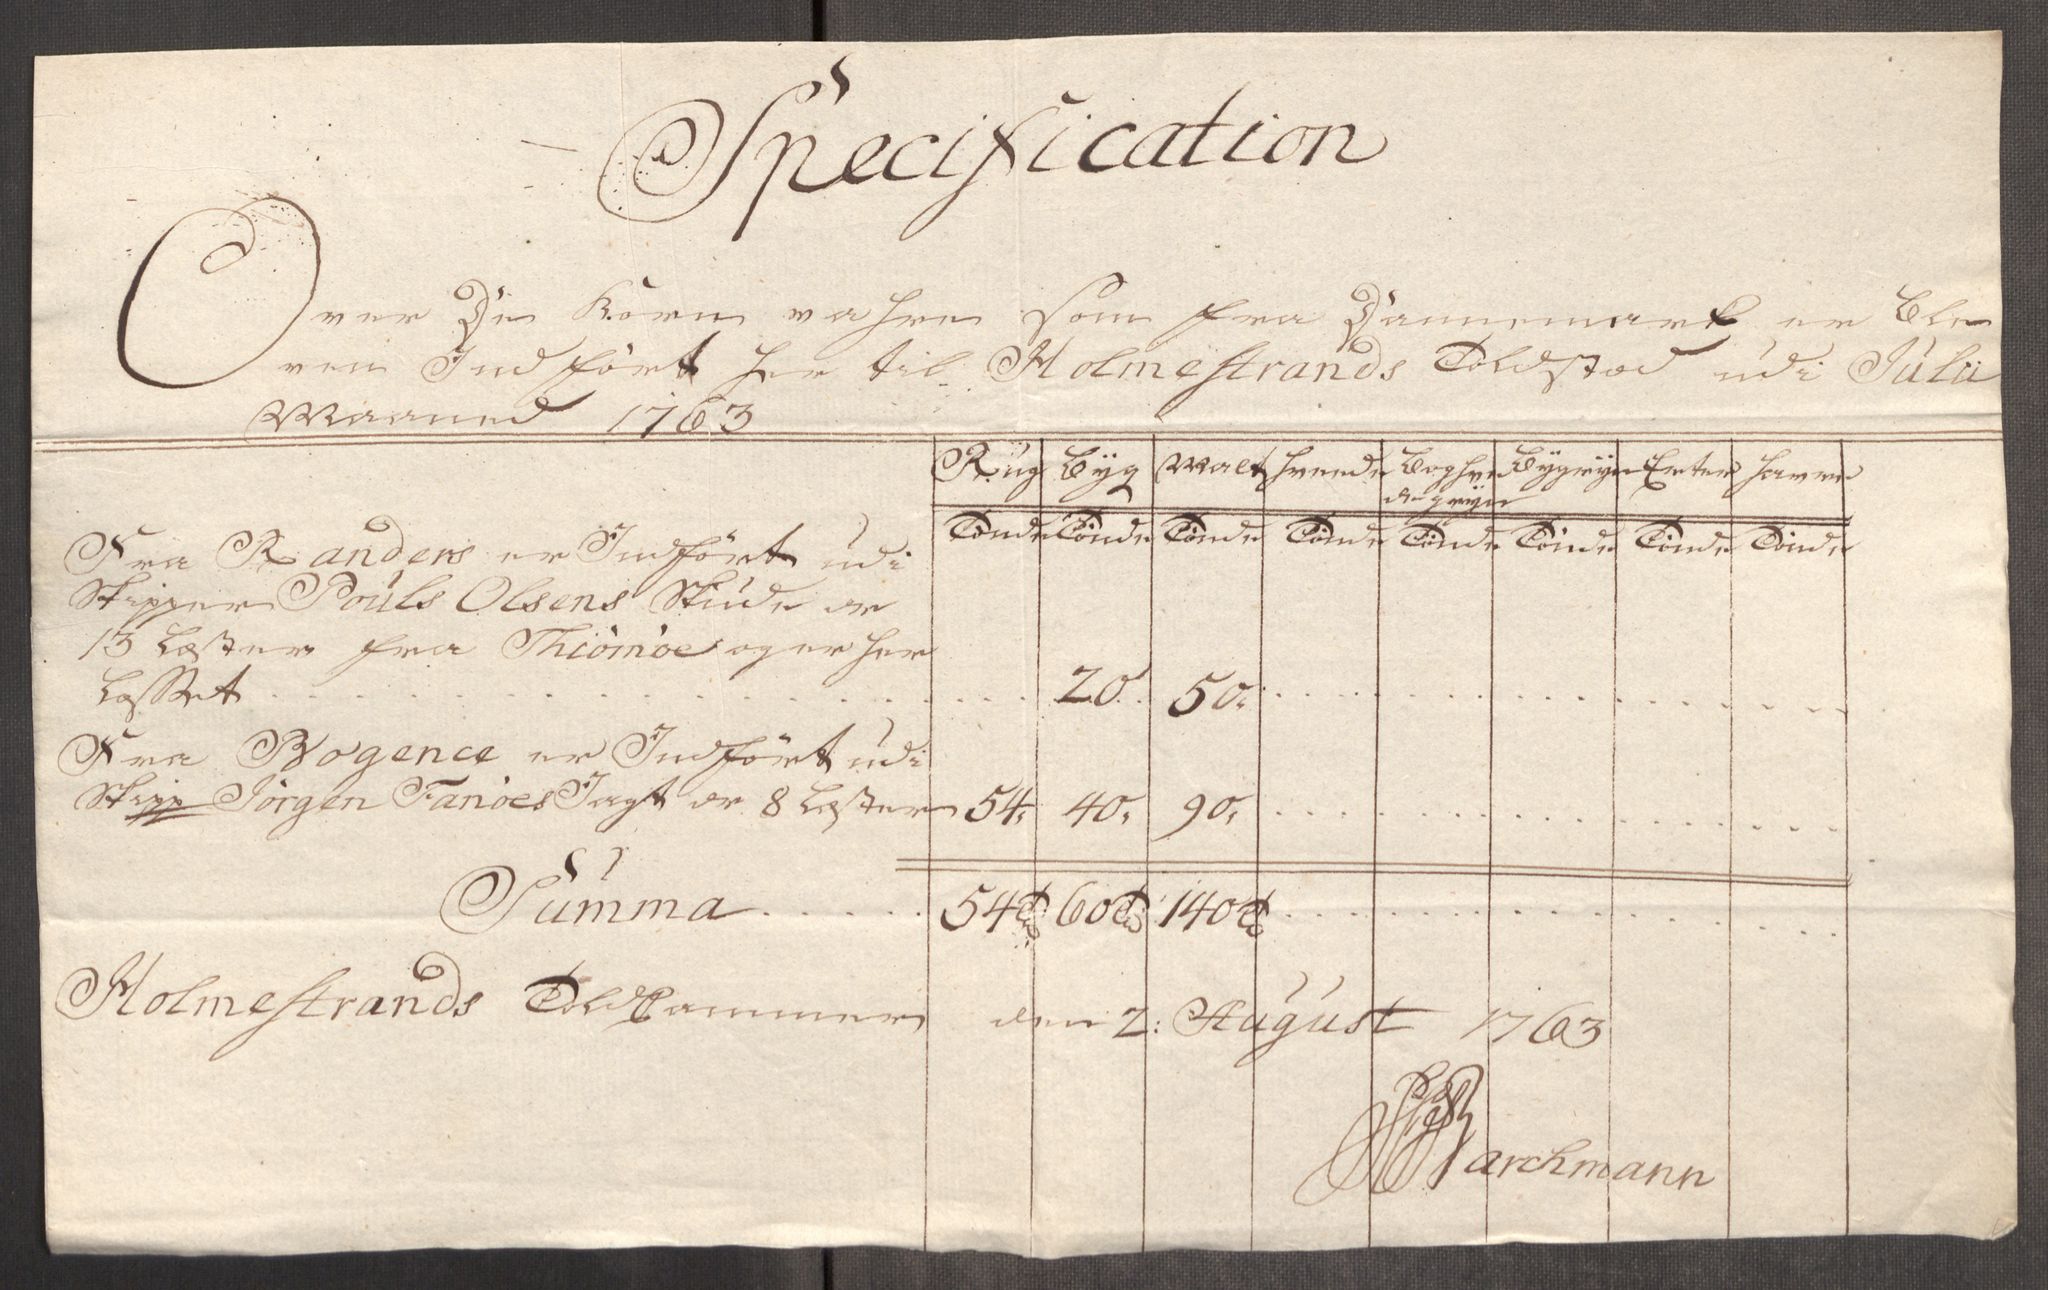 Specification
Over De Korn vahre som fra Dannemark er ble
ven Indført her til Holmestrands Toldsted udi Julii
Maaned 1763
Rug Byg Malt Hvede Boghve Bygryn Erter Havre
de gryn
Tønde Tønde Tønde Tønde Tønde Tønde Tønde Tønde
Fra Randers er Indført udi
Skipper Pouls Olsens Skude dr
13 Læster fra Thiömöe og er her
Losset 20. 50.
Fra Bogence er Indført udi
Skipp Jörgen Fanöes Jagt dr 8 Læster 54. 40. 90.
Summa 54 Td 60 Td 140 Td
Holmestrands Toldkammer den 2: August 1763
Parchmann